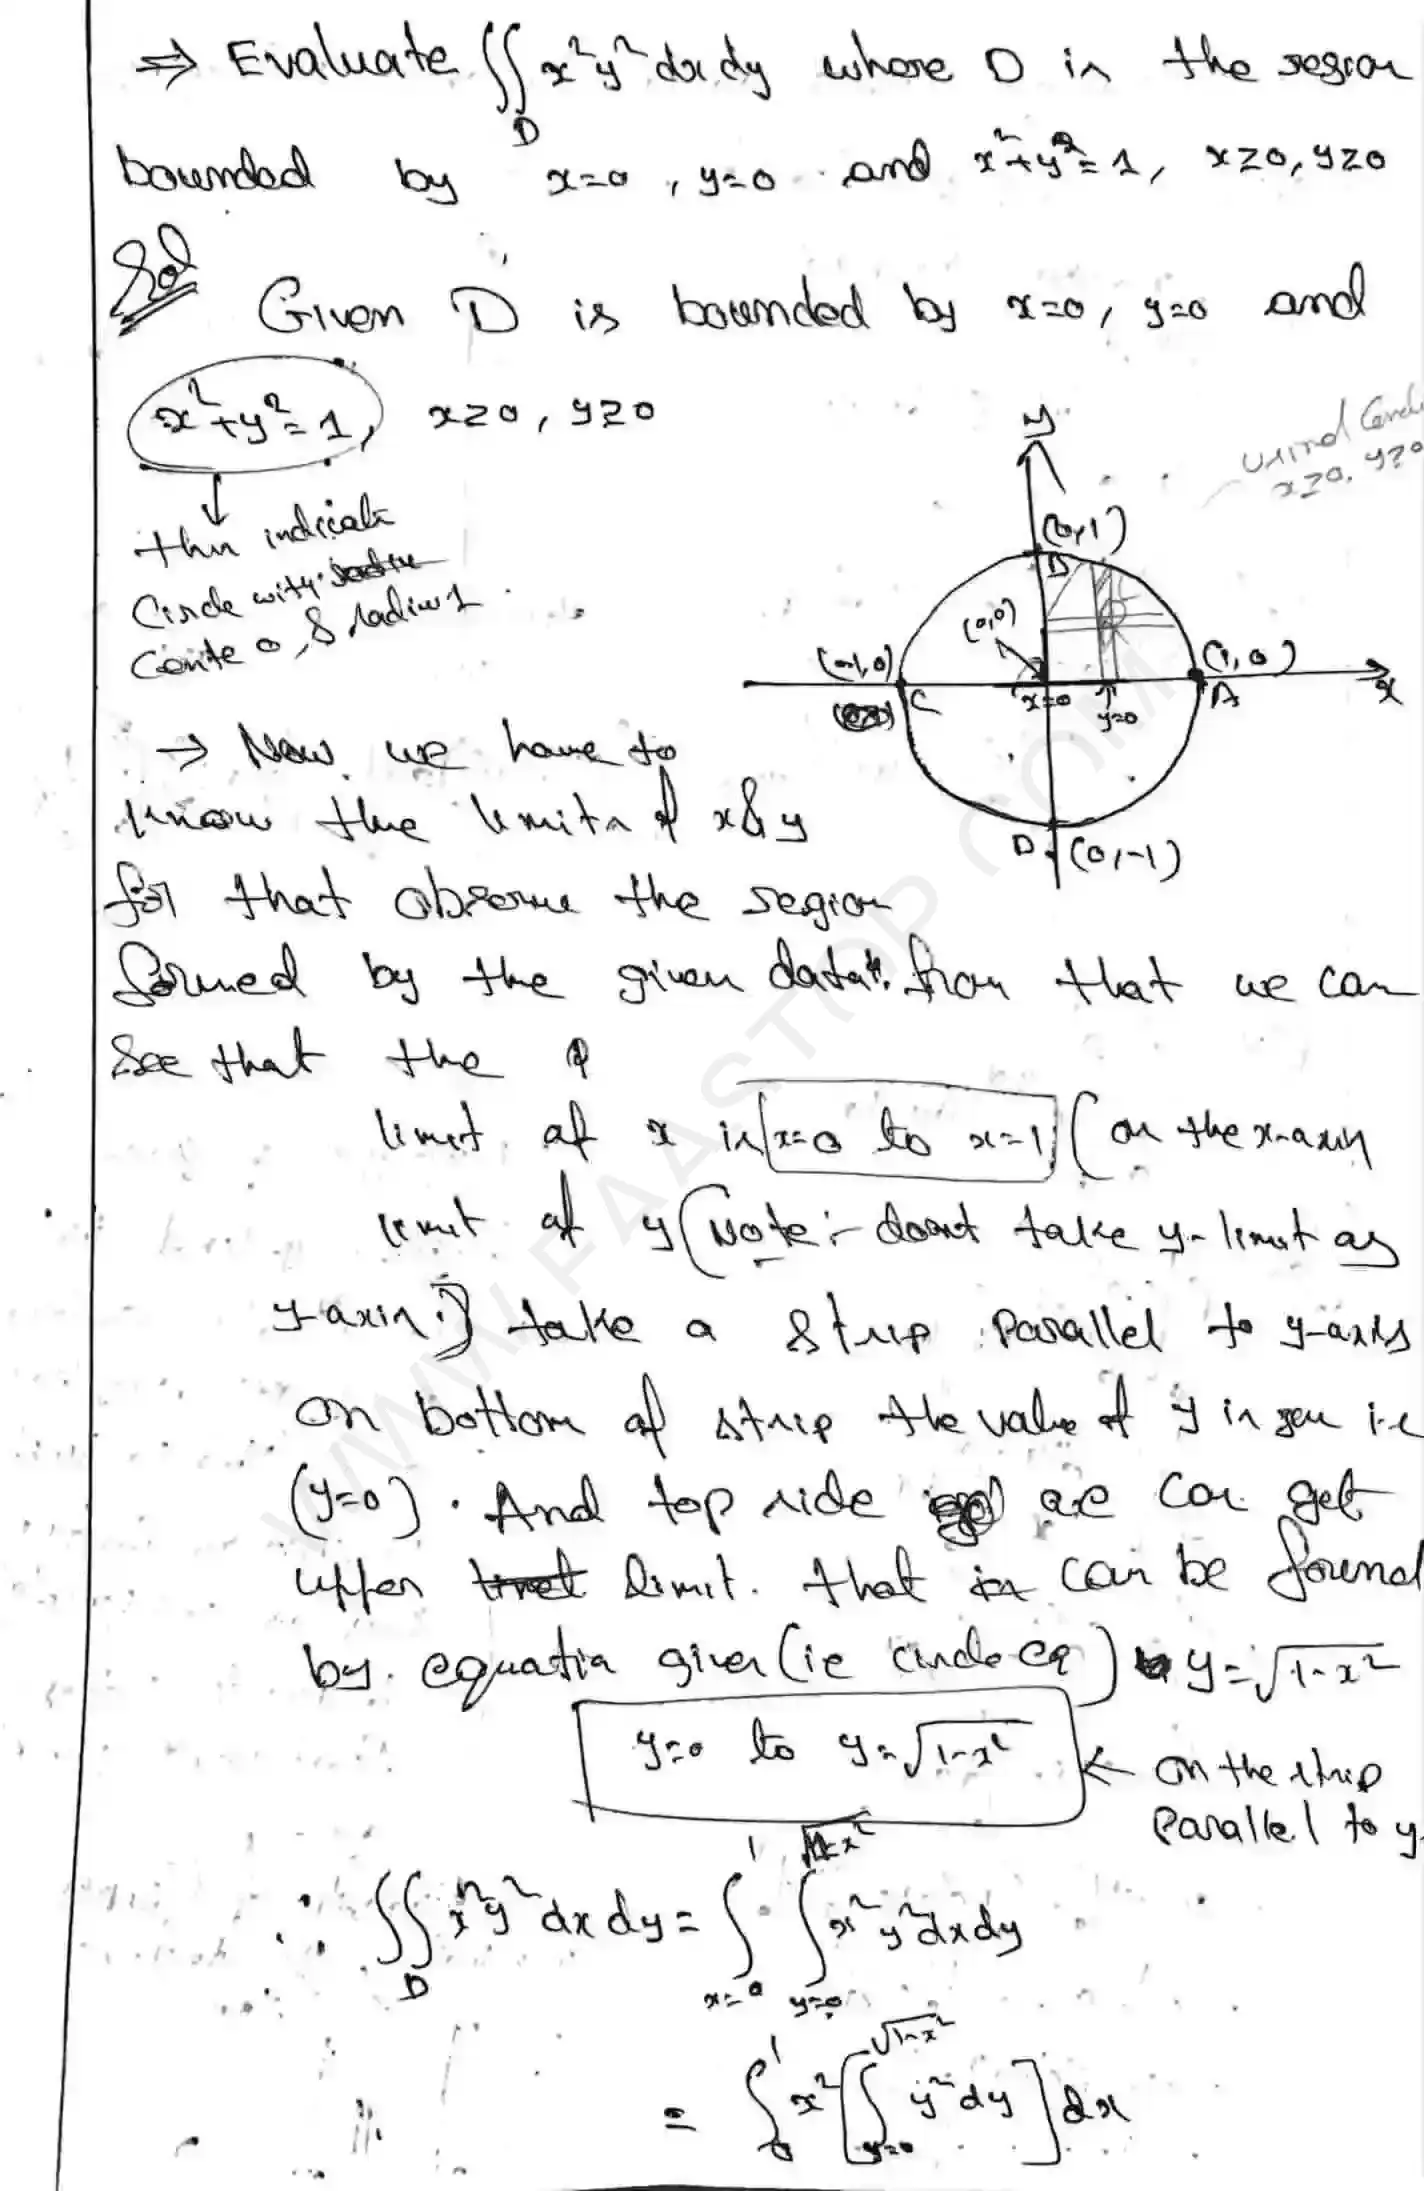 ⇒ Evaluate ∬_D x²y² dx dy where D is the region
bounded by x=0, y=0 and x²+y²=1, x≥0, y≥0
Sol
Given D is bounded by x=0, y=0 and
x²+y²=1, x≥0, y≥0
x≥0, y≥0
y
(0,1)
B
(0,0)
(-1,0)
(1,0)
C
x=0
y=0
A
x
D
(0,-1)
↓
this indicate
Circle with
Cente 0, & radius 1
→ Now we have to
know the limits of x & y
for that observe the region
formed by the given data. from that we can
see that the
limit of x is x=0 to x=1 (on the x-axis
limit of y (Note:- dont take y-limit as
y-axis.} take a strip parallel to y-axis
on bottom of strip the value of y is zero i.e
(y=0). And top side we can get
upper limit. that can be found
by equation given (ie circle eq) y=√1-x²
y=0 to y=√1-x² ← on the strip
parallel to y
∴ ∬_D x²y² dx dy = ∫_{x=0}^{1} ∫_{y=0}^{√1-x²} x²y² dx dy
= ∫_0^1 x² [∫_{y=0}^{√1-x²} y² dy] dx
WWW.FAASTOP.COM